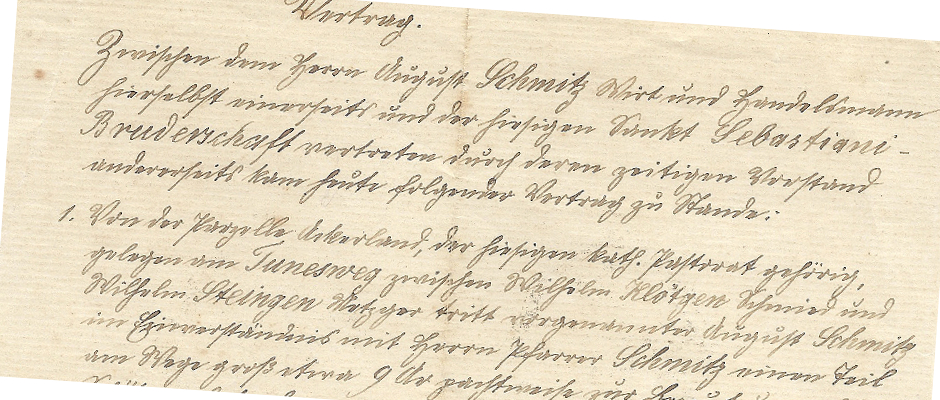 Vertrag.
Zwischen dem Herrn August Schmitz Wirt und Handelsmann
hierselbst einerseits und der hiesigen Sankt Sebastiani-
Bruderschaft vertreten durch deren zeitigen Vorstand
andererseits kam heute folgender Vertrag zu Stande:
1. Von der Parzelle Ackerland, der hiesigen kath. Pastorat gehörig,
gelegen am Tunesweg zwischen Wilhelm Klötgen Schmied und
Wilhelm Steingen Metzger tritt vorgenannter August Schmitz
im Einverständnis mit Herrn Pfarrer Schmitz einen Teil
am Wege groß etwa 9 Ar pachtweise zur